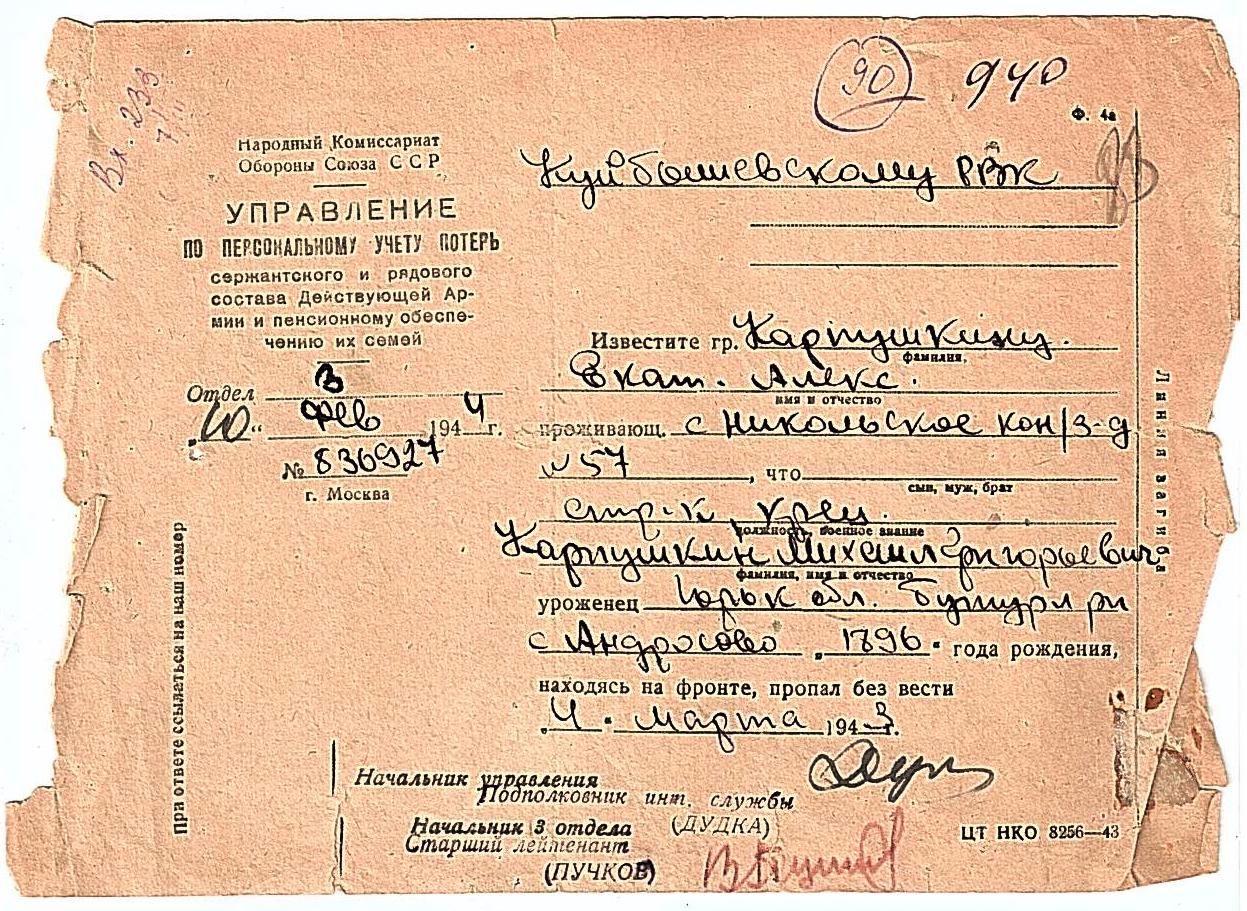 Вх. 233
90
940
Ф. 4а
Народный Комиссариат
Обороны Союза ССР
УПРАВЛЕНИЕ
ПО ПЕРСОНАЛЬНОМУ УЧЕТУ ПОТЕРЬ
сержантского и рядового
состава Действующей Ар-
мии и пенсионному обеспе-
чению их семей
Отдел 3
„10“ фев 1944г.
№ 836927
г. Москва
При ответе ссылаться на наш номер
Куйбышевскому РВК
Известите гр. Карпушкину
фамилия,
Екат. Алекс.
имя и отчество
проживающ. с Никольское кон/з-д
№ 57, что
сын, муж, брат
стр-к, крец.
должность, военное звание
Карпушкин Михаил Григорьевич
фамилия, имя и отчество
уроженец Горьк обл. Бутурл рн
с Андросово „1896" года рождения,
находясь на фронте, пропал без вести
„4" марта 1943г.
Линия загиба
Начальник управления
Подполковник инт. службы
(ДУДКА)
Начальник 3 отдела
Старший лейтенант
(ПУЧКОВ)
ЦТ НКО 8256—43